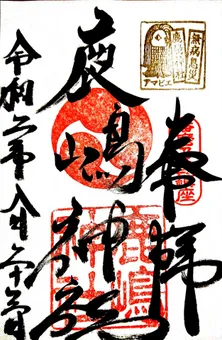 奉拝
鹿嶋神社
令和二年八月二十二日
無病息災
アマビエ
鹿嶋神社